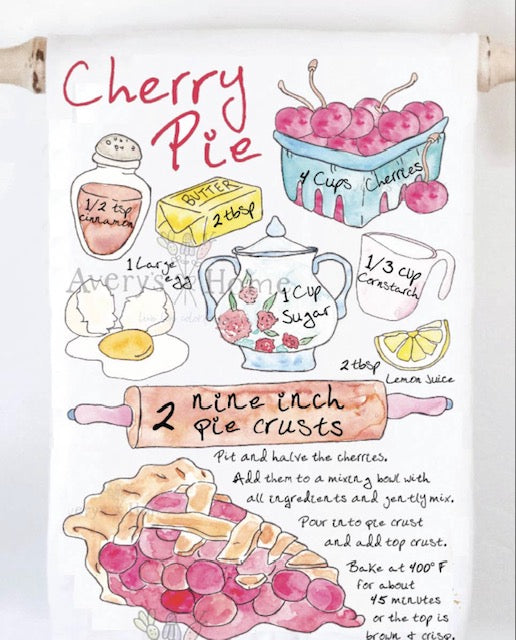 Cherry
Pie
4 Cups Cherries
1/2 tsp
cinnamon
BUTTER
2 tbsp
1 Large
egg
Avery's Home
1 Cup
Sugar
1/3 cup
Cornstarch
2 tbsp
Lemon Juice
2 nine inch
pie crusts
Pit and halve the cherries.
Add them to a mixing bowl with
all ingredients and gently mix.
Pour into pie crust
and add top crust.
Bake at 400° F
for about
45 minutes
or the top is
brown & crisp.